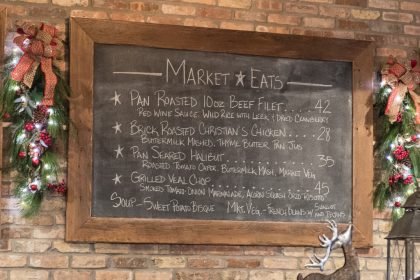 Market ★ Eats
★ Pan Roasted 10oz Beef Filet.....42
Red Wine Sauce, Wild Rice with Leek & Dried Cranberry
★ Brick Roasted Christian's Chicken...28
Buttermilk Mashed, Thyme Butter, Pan Jus
★ Pan Seared Halibut 35
Roasted Tomato Caper, Buttermilk Mash, Market Veg
★ Grilled Veal Chop 45
Smoked Tomato-Onion Marmalade, Risotto
Soup - Sweet Potato Bisque Mkt. Veg - French Beans w/
Shallot and Pecans